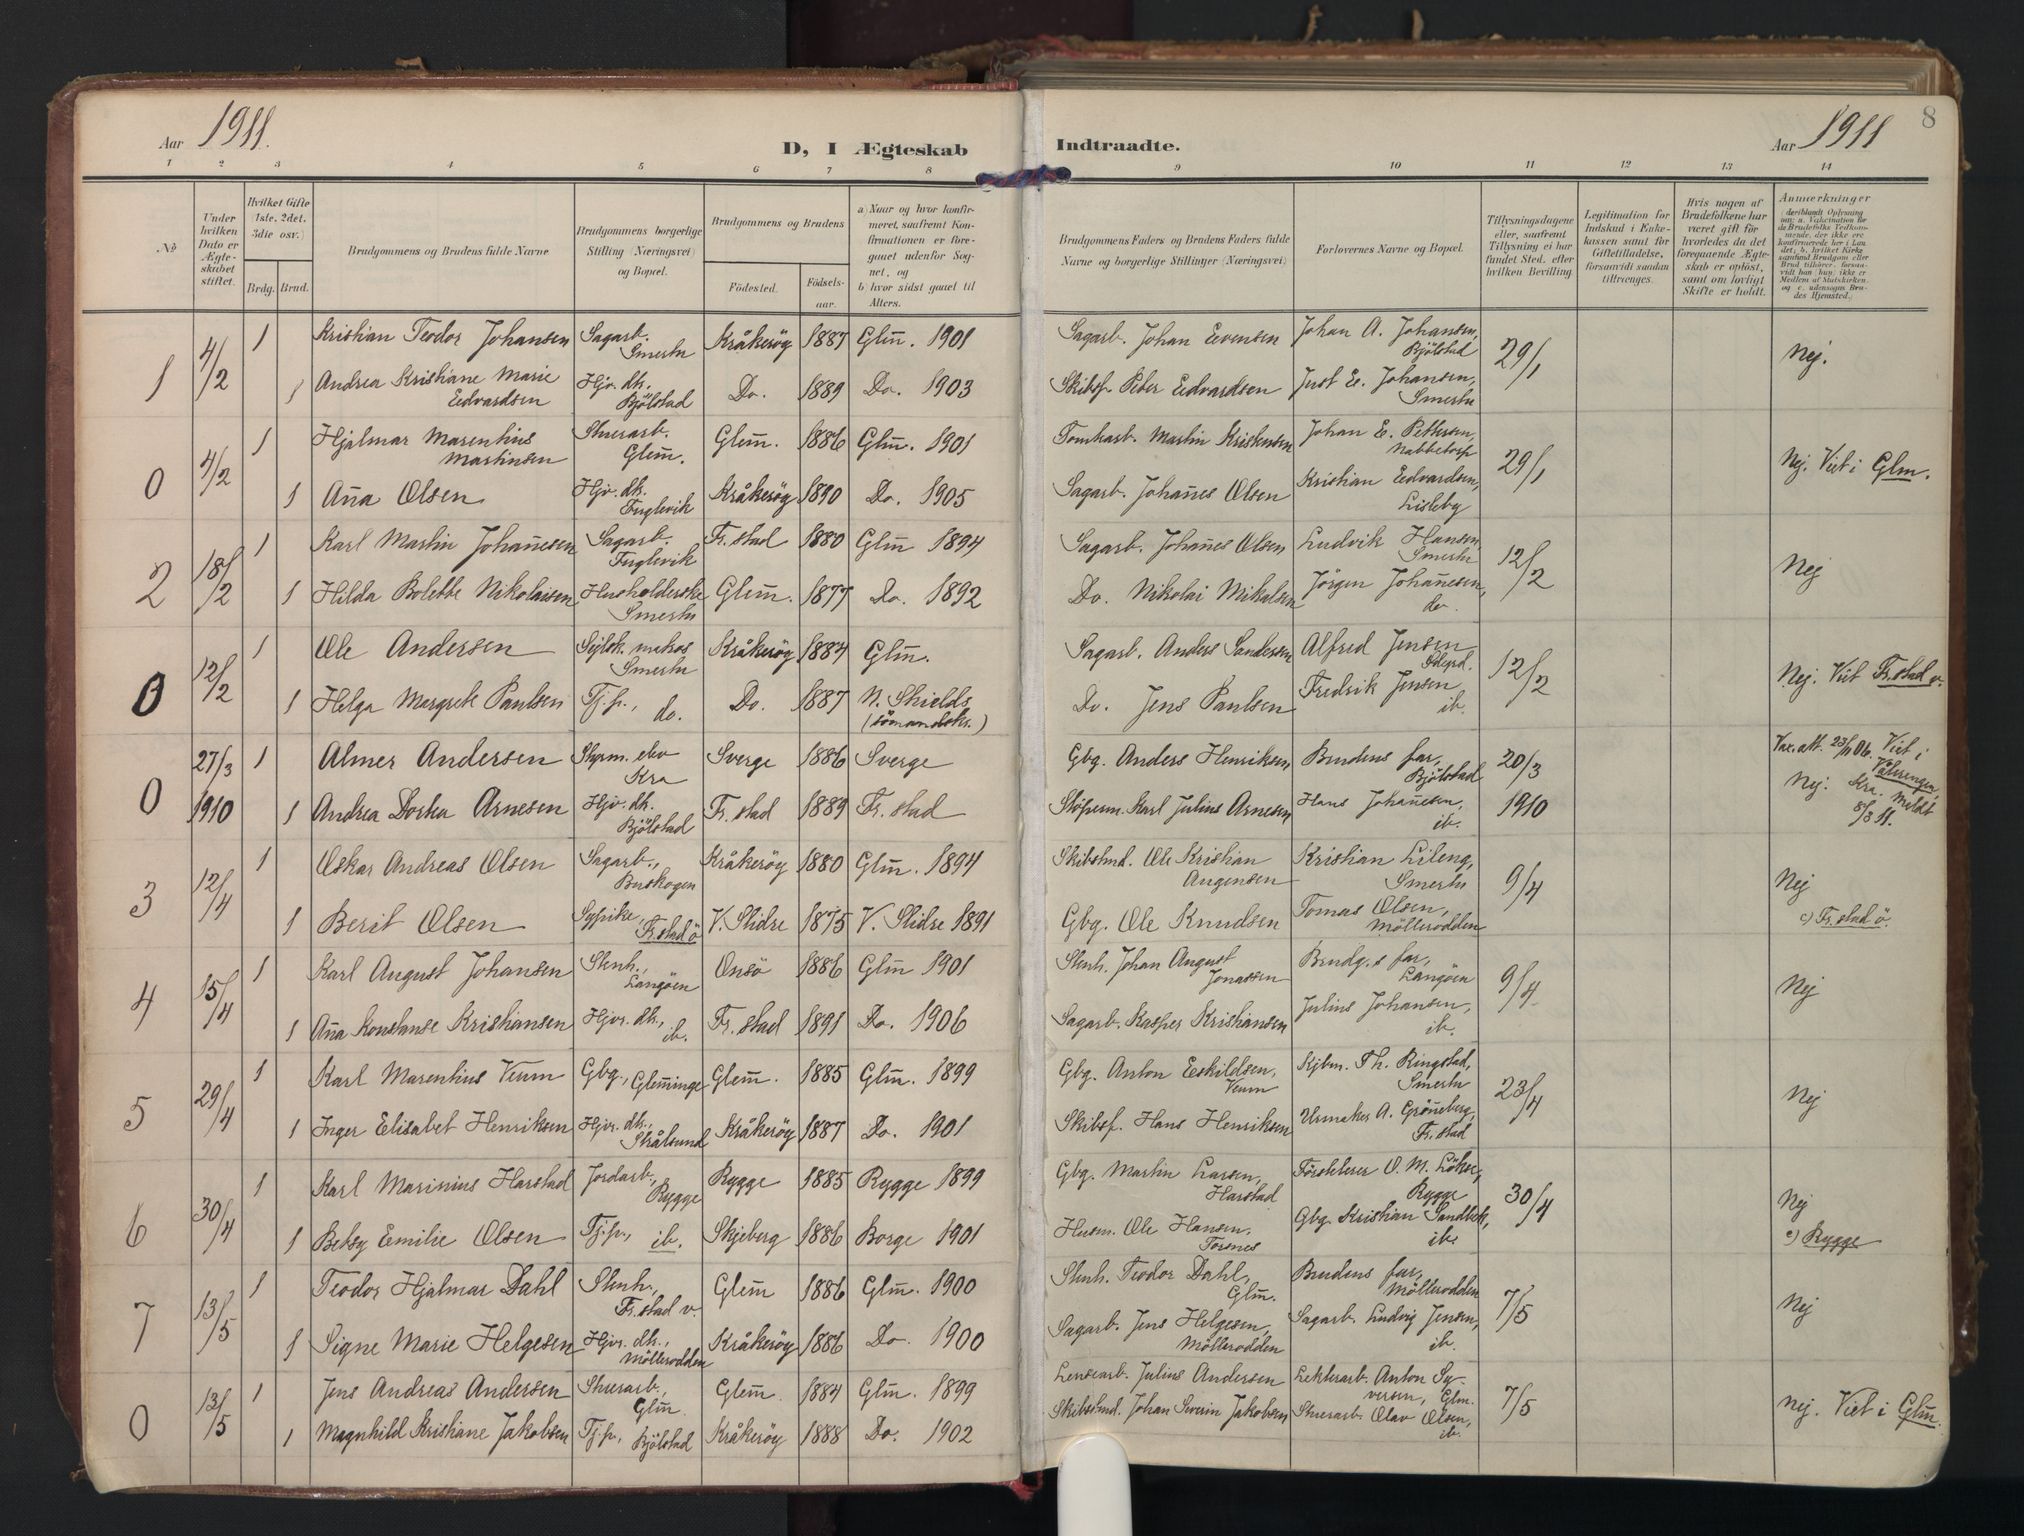 8
Aar 1911.
D, I Ægteskab
Indtraadte.
Aar 1911
1 2 3 4 5 6 7 8 9 10 11 12 13 14
No
Under hvilken Dato er Ægteskabet stiftet.
Hvilket Gifte (1ste, 2det, 3die osv.)
Brdg. Brud.
Brudgommens og Brudens fulde Navne
Brudgommens borgerlige Stilling (Næringsvei) og Bopæl.
Brudgommens og Brudens
Fødested.
Fødselsaar.
a) Naar og hvor konfirmeret, saafremt Konfirmationen er foregaaet udenfor Sognet, og
b) hvor sidst gaaet til Alters.
Brudgommens Faders og Brudens Faders fulde Navne og borgerlige Stillinger (Næringsvei)
Forlovernes Navne og Bopæl.
Tillysningsdagene eller, saafremt Tillysning ei har fundet Sted, efter hvilken Bevilling
Legitimation for Indskud i Enkekassen samt for Giftetilladelse, forsaavidt saadan tiltrænges.
Hvis nogen af Brudefolkene har været gift før hvorledes da det foregaaende Ægteskab er opløst, samt om lovligt Skifte er holdt.
Anmerkninger (deriblandt Oplysning om: a. Vakcination for de Brudefolks Vedkommende, der ikke ere konfirmerede her i Landet; b. hvilket Kirkesamfund Brudgom eller Brud tilhører, forsaavidt han (hun) ikke er Medlem af Statskirken, og c. udensogns Brudes Hjemsted.)
1 4/2 1 Kristian Teodor Johansen Sagarb. Smertu Kråkerøy 1887 Glm. 1901 Sagarb. Johan Evensen Johan A. Johansen, Bjölstad 29/1 Nej.
1 Andrea Kristiane Marie Edvardsen Hjv. dt. Bjölstad Do. 1889 Do. 1903 Skibsf. Peter Edvardsen Just E. Johansen, Smertu
0 4/2 1 Hjalmar Marentius Martinsen Stuerarb. Glem. 1886 Glm. 1901 Tomtearb. Martin Kristensen Johan E. Pettersen, Nabbetorp 29/1 Nej. Viet i Glm.
1 Ana Olsen Hjv. dt. Fuglevik Kråkerøy 1890 Do. 1905 Sagarb. Johanes Olsen Kristian Edvardsen, Lisleby
2 18/2 1 Karl Martin Johanesen Sagarb. Fuglevik Fr.stad 1880 Glm 1894 Sagarb. Johanes Olsen Ludvik Hansen, Smertu 12/2 Nej
1 Hilda Bolette Nikolaisen Husholderske Smertu Glem. 1877 Do. 1892 Do. Nikolai Mikalsen Jörgen Johanesen, do.
0 12/2 1 Ole Andersen Smertu Kråkerøy 1884 Glm. Sagarb. Anders Sandersen Alfred Jensen 12/2 Nej. Viet Fr.stad v.
1 Helga Margrete Paulsen Tj.p., do. Do. 1887 N. Shields (sömandsk.) Do. Jens Paulsen Fredrik Jensen ib.
0 27/3 1910 1 Almer Andersen Styrm. elev Kra Sverge 1886 Sverge Gbg. Anders Henriksen Brudens far, Bjölstad 20/3 1910 Vax.att. 23/1 06. Viet i Vålerengen, Kra. Meldt 8/3 11. Nej.
1 Andrea Dorka Arnesen Hjv. dt. Bjölstad Fr.stad 1889 Fr.stad Stöperm. Karl Julius Arnesen Hans Johanesen, ib.
3 12/4 1 Oskar Andreas Olsen Sagarb., Buskogen Kråkerøy 1880 Glm. 1894 Skibstmd. Ole Kristian Angensen Kristian Lileng, Smertu 9/4 Nej
1 Berit Olsen Sypike, Fr.stad ö V. Slidre 1875 V. Slidre 1891 Gbg. Ole Knudsen Tomas Olsen, Möllerodden c) Fr.stad ö.
4 15/4 1 Karl August Johansen Stenh., Langöen Onsö 1886 Glm 1901 Stenh. Johan August Jonassen Brudg.s far, Langöen 9/4 Nej
1 Ana Konstanse Kristiansen Hjv. dt., ib. Fr.stad 1891 Do. 1906 Sagarb. Kasper Kristiansen Julius Johansen, ib.
5 29/4 1 Karl Marentius Veum Gbg., Glemminge Glem. 1885 Glm. 1899 Gbg. Anton Eskildsen, Veum Kjbm. Th. Ringstad, Smertu 23/4 Nej
1 Inger Elisabet Henriksen Hjv. dt., Stålsund Kråkerøy 1887 Do. 1901 Skibsf. Hans Henriksen Urmaker A. Gröneberg, Fr.stad
6 30/4 1 Karl Marinius Harstad Jordarb., Rygge Rygge 1885 Rygge 1899 Gbg. Martin Larsen, Harstad O. M. Löken, Rygge 30/4 Nej
1 Betsy Emilie Olsen Tj.p., ib. Skjeberg 1886 Borge 1901 Husm. Ole Hansen, Torsnes Gbg. Kristian Sandbæk, ib. c) Rygge
7 13/5 1 Teodor Hjalmar Dahl Stenh., Fr.stad v. Glem 1886 Glm. 1900 Stenh. Teodor Dahl, Glm. Brudens far, Möllerodden 7/5 Nej
1 Signe Marie Helgesen Hjv. dt., Möllerodden Kråkerøy 1886 Do. 1900 Sagarb. Jens Helgesen, Möllerodden Sagarb. Ludvig Jensen, ib.
0 13/5 1 Jens Andreas Andersen Stuerarb., Glm. Glem. 1884 Glm. 1899 Lensearb. Julius Andersen Lekterarb. Anton Syversen, Glm. 7/5 Nej. Viet i Glm.
1 Magnhild Kristiane Jakobsen Tj.p., Bjölstad Kråkerøy 1888 Do. 1902 Skibstmd. Johan Severin Jakobsen Stuerarb. Olav Olsen, ib.